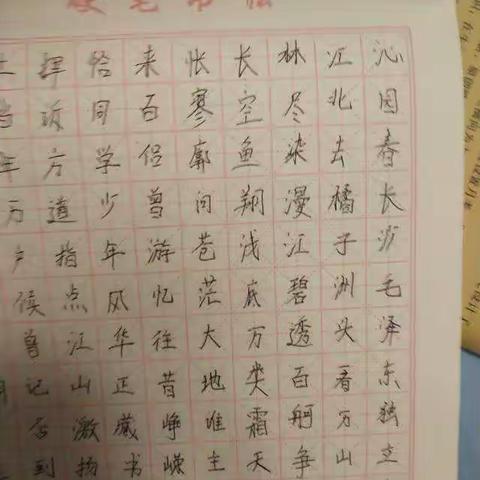 硬笔书法
沁园春长沙毛泽东独立
江北去橘子洲头看万山
林尽染漫江碧透百舸争
长空鱼翔浅底万类霜天
怅寥廓问苍茫大地谁主
来百侣曾游忆往昔峥嵘
恰同学少年风华正茂书
挥方道指点江山激扬
土当年万户候曾记否到